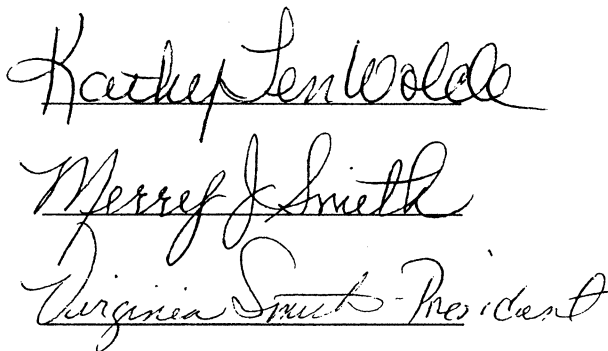 Kathy TenWolde
Merry J Smith
Virginia Smith - President